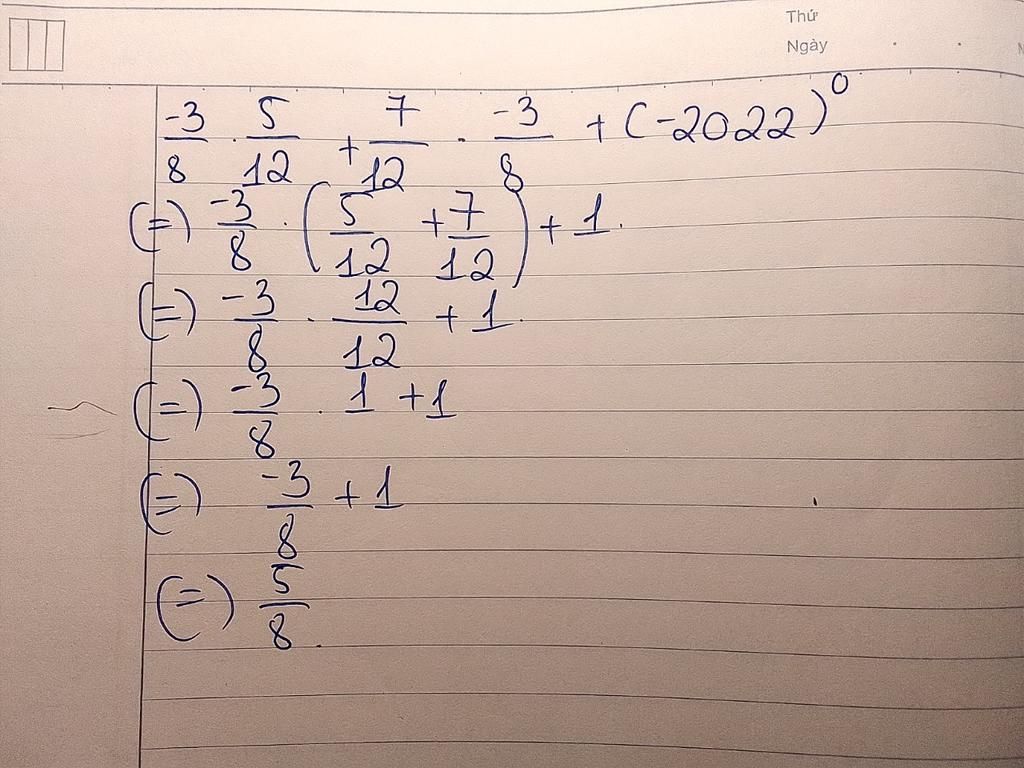 Thứ
Ngày
-3/8 . 5/12 + 7/12 . -3/8 + (-2022)^0
(=) -3/8 . (5/12 + 7/12) + 1.
(=) -3/8 . 12/12 + 1.
(=) -3/8 . 1 + 1
(=) -3/8 + 1
(=) 5/8.